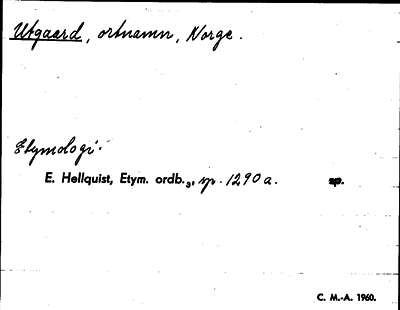 Utgaard, ortnamn, Norge.
Etymologi:
E. Hellquist, Etym. ordb.3, sp. 1290 a. sp.
C. M.-A. 1960.